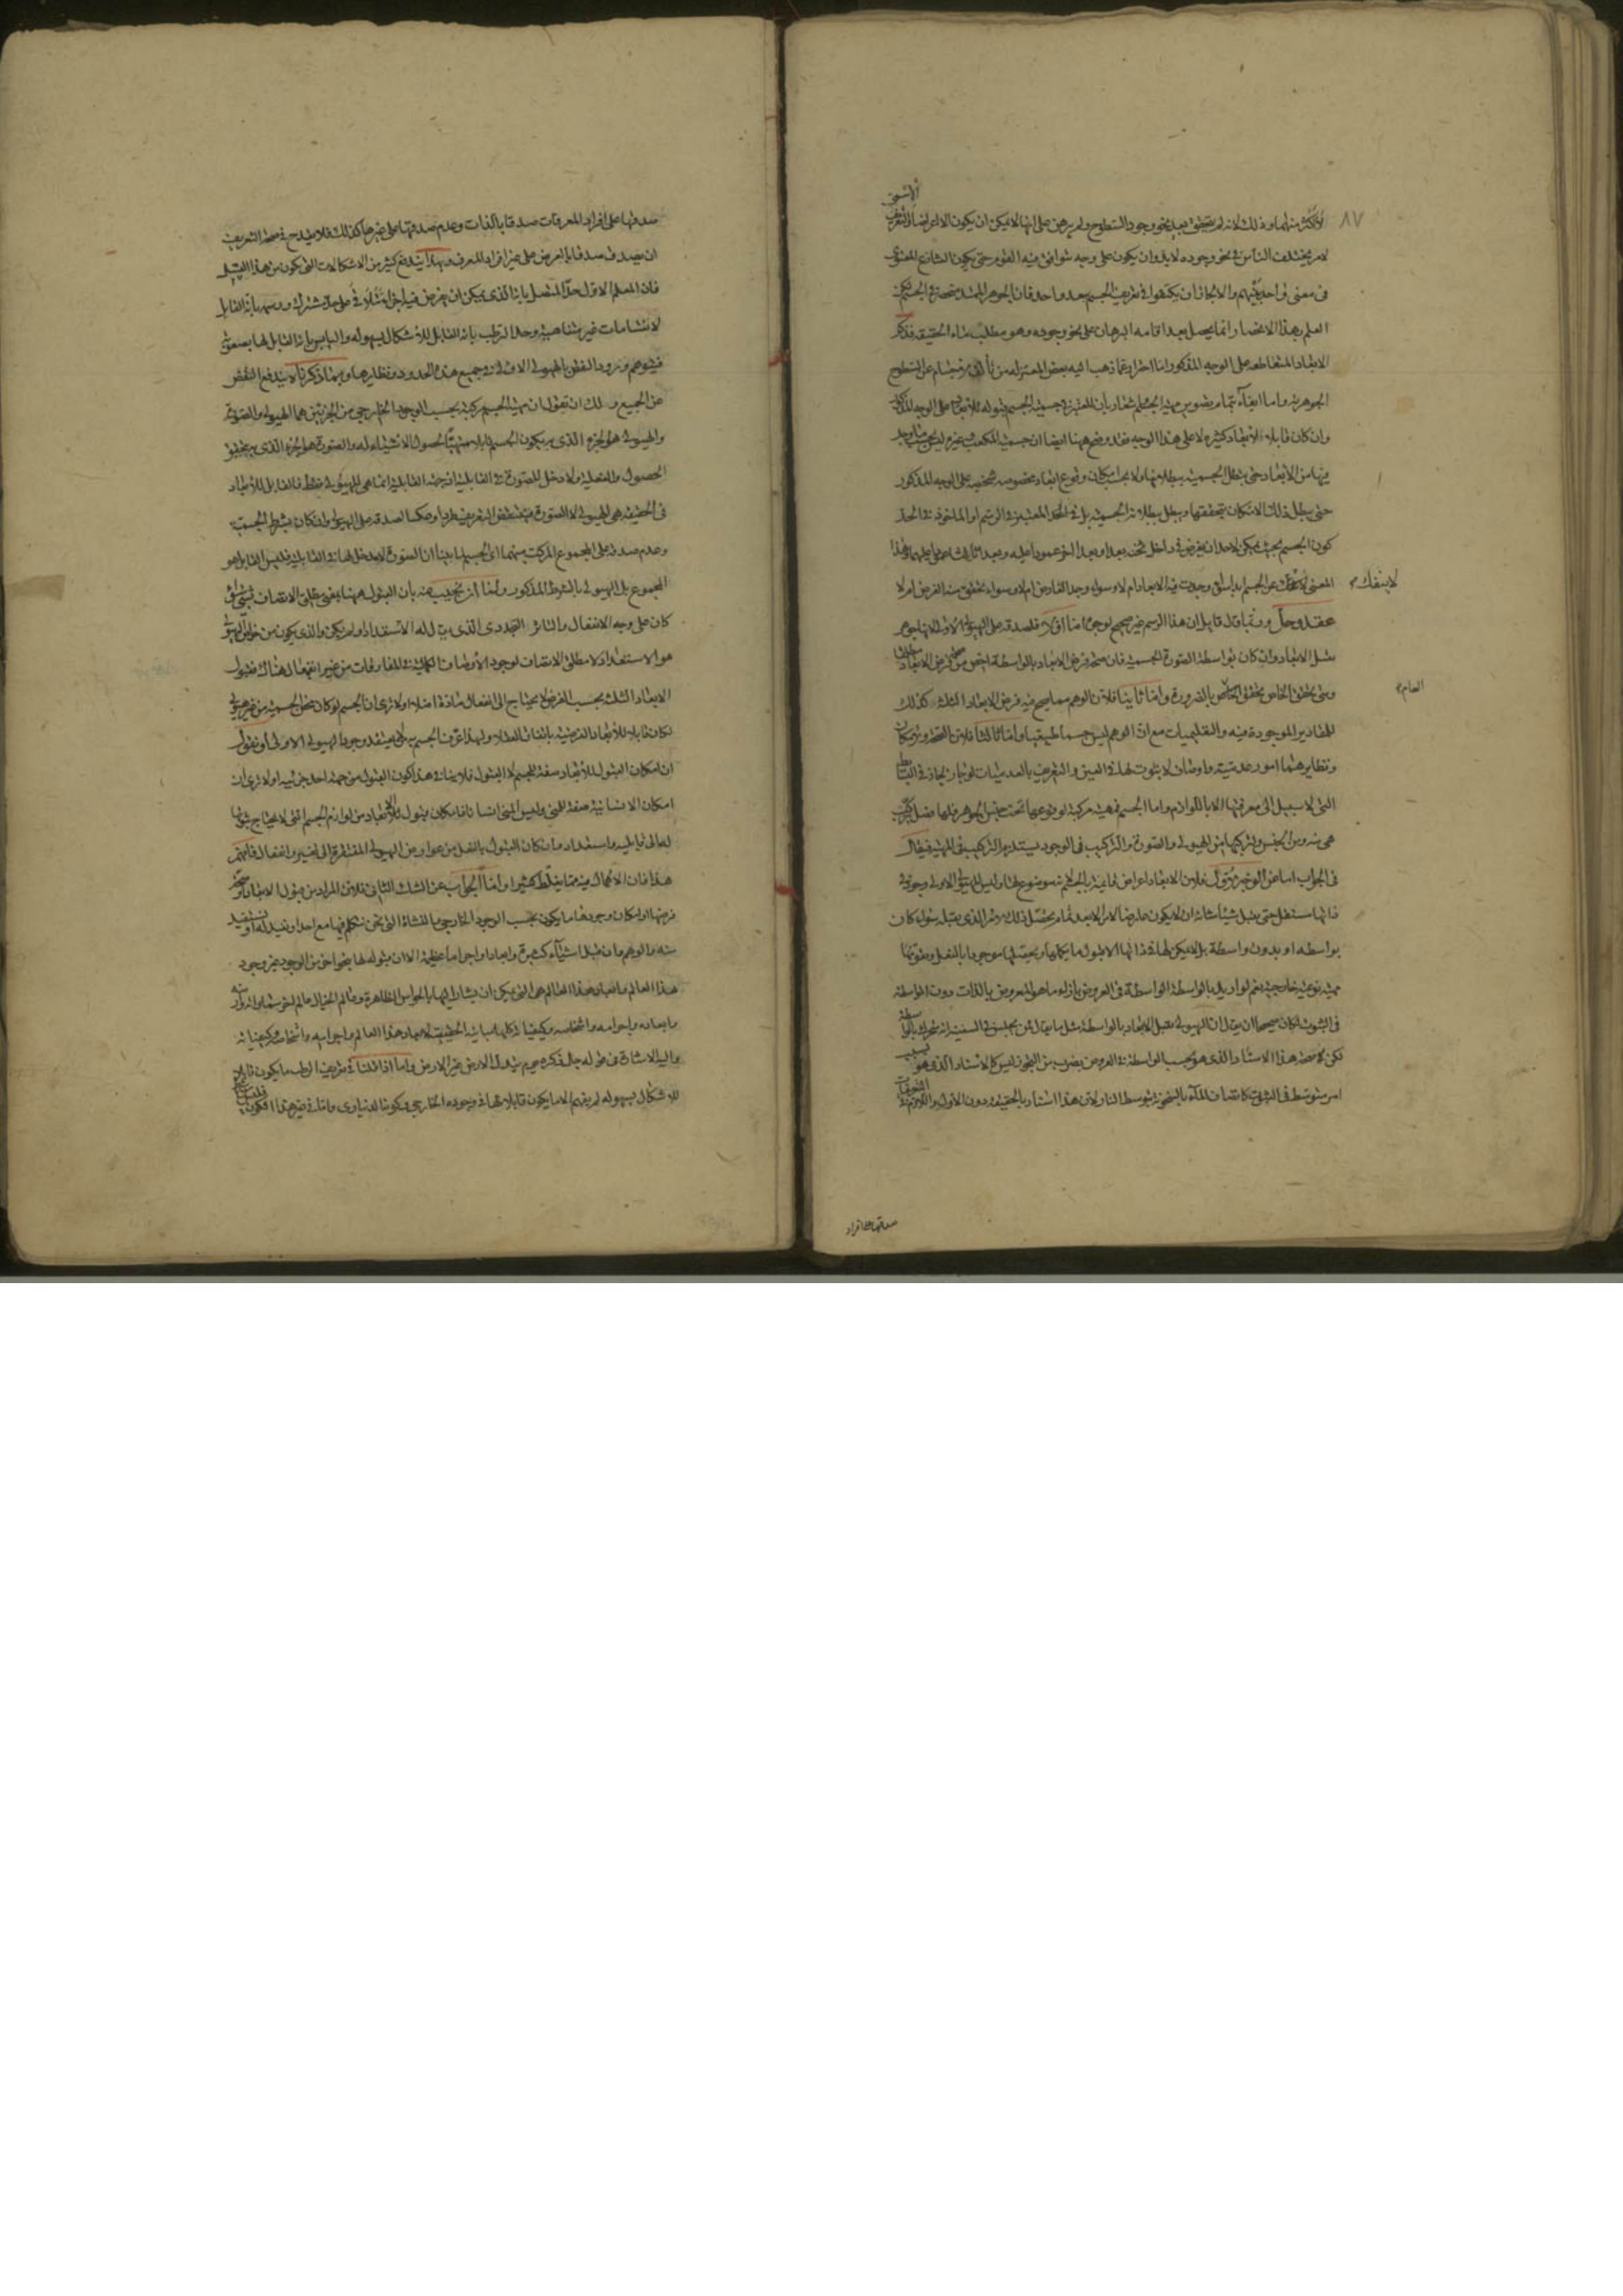 ٨٧
لاكثر منهما وذلك لانه لم يتحقق بعد نحو وجود السطوح ولم يبرهن على انها لا يمكن ان يكون الا اعراضا والتعريف
لامر يختلف الناس في نحو وجوده لا بد وان يكون على وجه يتوافق فيه القوم حتى يكون التنازع المعنوى
في معنى واحد بينهم والا لجاز ان يكتفوا في تعريف الجسم بحد واحد فان الجوهر الممتد منحصر في الجسم لكن
العلم بهذا الانحصار انما يحصل بعد اقامه البرهان على نحو وجوده وهو مطلب ماء الحقيقه فذكر
الابعاد المتقاطعه على الوجه المذكور اما احتراز عما ذهب اليه بعض المعتزله من تألف جسم من السطوح
الجوهريه واما ايفاء لتمام تصوير مهية الجسم اشعار بان المعتبر في جسمية الجسم قبوله للابعاد على الوجه المذكور
وان كان قابلا لابعاد كثيره لا على هذا الوجه فقد وضح ههنا ايضا ان جسمية المكعب وغيره ليس بحسب ما وجد
فيها من الابعاد حتى يبطل الجسميه ببطلانها ولا بحسب امكان وقوع ابعاد مخصوصه شخصيه على الوجه المذكور
حتى يبطل ذلك الامكان بتحققها ويبطل ببطلانه الجسمية بل في الحد المعتبر في الرسم او الماخوذ في الحد
كون الجسم بحيث يمكن لاحد ان يفرض في داخل ثخنه بعدا وبعدا اخر عمودا عليه وبعدا ثالثا عمودا عليهما وهذا
المعنى لا ينفك عن الجسم بداسواء وجدت فيه الابعاد ام لا وسواء وجد الفارض ام لا وسواء تحقق منه الفرض ام لا
لا ينفك
عقد وحل وربما قال قايل ان هذا الرسم غير صحيح لوجوه اما اولا فلصدقه على الهيولى الاولى لانها جوهر
يقبل الابعاد وان كان بواسطة الصورة الجسمية فان صحة فرض الابعاد بالواسطة اخص من صحة فرض الابعاد مطلقا
ومتى تحقق الخاص تحقق العام بالضرورة واما ثانيا فلان الوهم مما يصح فيه فرض الابعاد الثلثه كذلك
العام
للمقادير الموجودة فيه والتعليميات مع ان الوهم ليس جسما طبيعيا واما ثالثا فلان الصحة والامكان
ونظايرهما امور عدمية واوصاف لا ثبوت لها في العين والتعريف بالعدميات لو جاز لجاز في البسائط
التى لا سبيل الى معرفتها الا باللوازم واما الجسم فهيئه مركبة لوقوعها تحت جنس الجوهر فلها فصل يتركب
هى منه ومن الجنس ولتركبها من الهيولى والصورة والتركيب في الوجود يستلزم التركيب في المهية فيقال
في الجواب اما عن الوجه الاول فلان الابعاد اعراض قائمة بالجسم وهو موضوع لها وليس للهيولى الاولى وجود في
ذاتها مستقل حتى يقبل شيئا شانه ان لا يكون عارضا الا لامر الا بعد تمام تحصل ذلك الامر الذى يقبله سواء كان
بواسطه او بدون واسطة بل لا يمكن لها في ذاتها الا قبول ما يكملها ويحصلها موجودا بالفعل ويقومها
مهيه نوعية خارجية نعم لو اريد بالواسطة الواسطة في العروض بازاء ما هو المعروض بالذات دون الواسطه
في الثبوت لكان صحيحا ان يقال ان الهيولى يقبل الابعاد بالواسطه مثل ما يقال لمن يجلس في السفينة انه متحرك بالواسطة
لكن لا صحة هذا الاسناد الذى هو بحسب الواسطة في العروض بضرب من التجوز ليس كالاسناد الذى هو بسبب
امر متوسط في الثبوت كاتصاف الماء بالسخونة بتوسط النار لان هذا اسناد بالحقيقة دون الاول واللازم في التعريفات
صدقها على افراد
صدقها على افراد المعرفات صدقا بالذات وعدم صدقها على غيرها كذلك فلا يقدح في صحة التعريف
ان يصدق صدقا بالعرض على غير افراد المعرف وبهذا يندفع كثير من الاشكالات التى يكون من هذا القبيل
فان المعلم الاول حد المتصل بانه الذى يمكن ان يفرض فيه اجزاء يتلاقى على حد مشترك ورسمه بانه القابل
لانقسامات غير متناهيه وحد الرطب بانه القابل للاشكال بسهوله واليابس بانه القابل لها بصعوبة
فيتوهم ورود النقض بالهيولى الاولى في جميع هذه الحدود ونظايرها وبما ذكرناه يندفع النقض
عن الجميع ولك ان تقول ان مهية الجسم مركبة بحسب الوجود الخارجي من الجزئين هما الهيولى والصورة
والهيولى هو الجزء الذى به يكون الجسم قابلا متهيئا لحصول الاشياء له والصورة هو الجزء الذى به يتحقق
الحصول والفعلية ولا دخل للصورة في القابلية انه جهة القابلية انما هي الهيولى فقط فالقابل للابعاد
في الحقيقه هي الهيولى لا الصورة فينتقض التعريف طردا وعكسا لصدقه على الهيولى وان كان بشرط الجسمية
وعدم صدقه على المجموع المركب منهما اى الجسم لما بينا ان الصورة لا مدخل لها في القابلية فليس القابل هو
المجموع بل الهيولى بالشرط المذكور ولنا ان نجيب عنه بان القبول ههنا بمعنى مطلق الاتصاف بشئ سواء
كان على وجه الانفعال والتاثر التجددى الذى يقال له الاستعداد او لم يكن والذى يكون من خواص الهيولى
هو الاستعداد لا مطلق الاتصاف لوجود الاوصاف الكمالية في المفارقات من غير انفعال هناك فقبول
الابعاد الثلثه بحسب الفرض لا يحتاج الى انفعال مادة اصلا اولا ترى ان الجسم لو كان محض الجسمية من غير هيولى
لكان قابلا للابعاد الفرضيه باتفاق العقلاء ولهذا عرف الجسم به من لم يعتقد وجود الهيولى الاولى او نقول
ان امكان القبول للابعاد صفة للجسم لا القبول فلا ينافي هذا كون القبول من جهة احد جزئيه اولا ترى ان
امكان الانسانية صفة للمنى وليس المنى انسانا فامكان قبول الابعاد من لوازم الجسم التى لا يحتاج ثبوتها
له الى قابليه واستعداد وان كان القبول بالفعل من عوارض الهيولى المفتقرة الى تغير وانفعال فافهم
هذا فان الاهمال فيه مما يغلط كثيرا واما الجواب عن الشك الثاني فلان المراد من قبول الابعاد وصحة
فرضها او امكان وجودها ما يكون بحسب الوجود الخارجي بالنشاة التى نحن نتكلم فيها مع احد او نفيد له او نستفيد
منه والوهم وان قبل اشياء كثيرة وابعادا واجراما عظيمة الا ان قبوله لها بنحو اخر من الوجود غير وجود
هذا العالم وابعاد هذا العالم هي التى يمكن ان يشار اليها بالحواس الظاهرة وعالم الخيال عالم اخر سماواته وارضه
وابعاده واجرامه واشخاصه وكيفياته كلها مباينة الحقيقة لابعاد هذا العالم واجرامه واشخاصه وكيفياته
واليه الاشارة في قوله جل ذكره يوم تبدل الارض غير الارض واما اذا قلنا في تعريف الرطب ما يكون قابلا
للاشكال بسهوله لم يفهم الا ما يكون قابلا لها في وجوده الخارجي